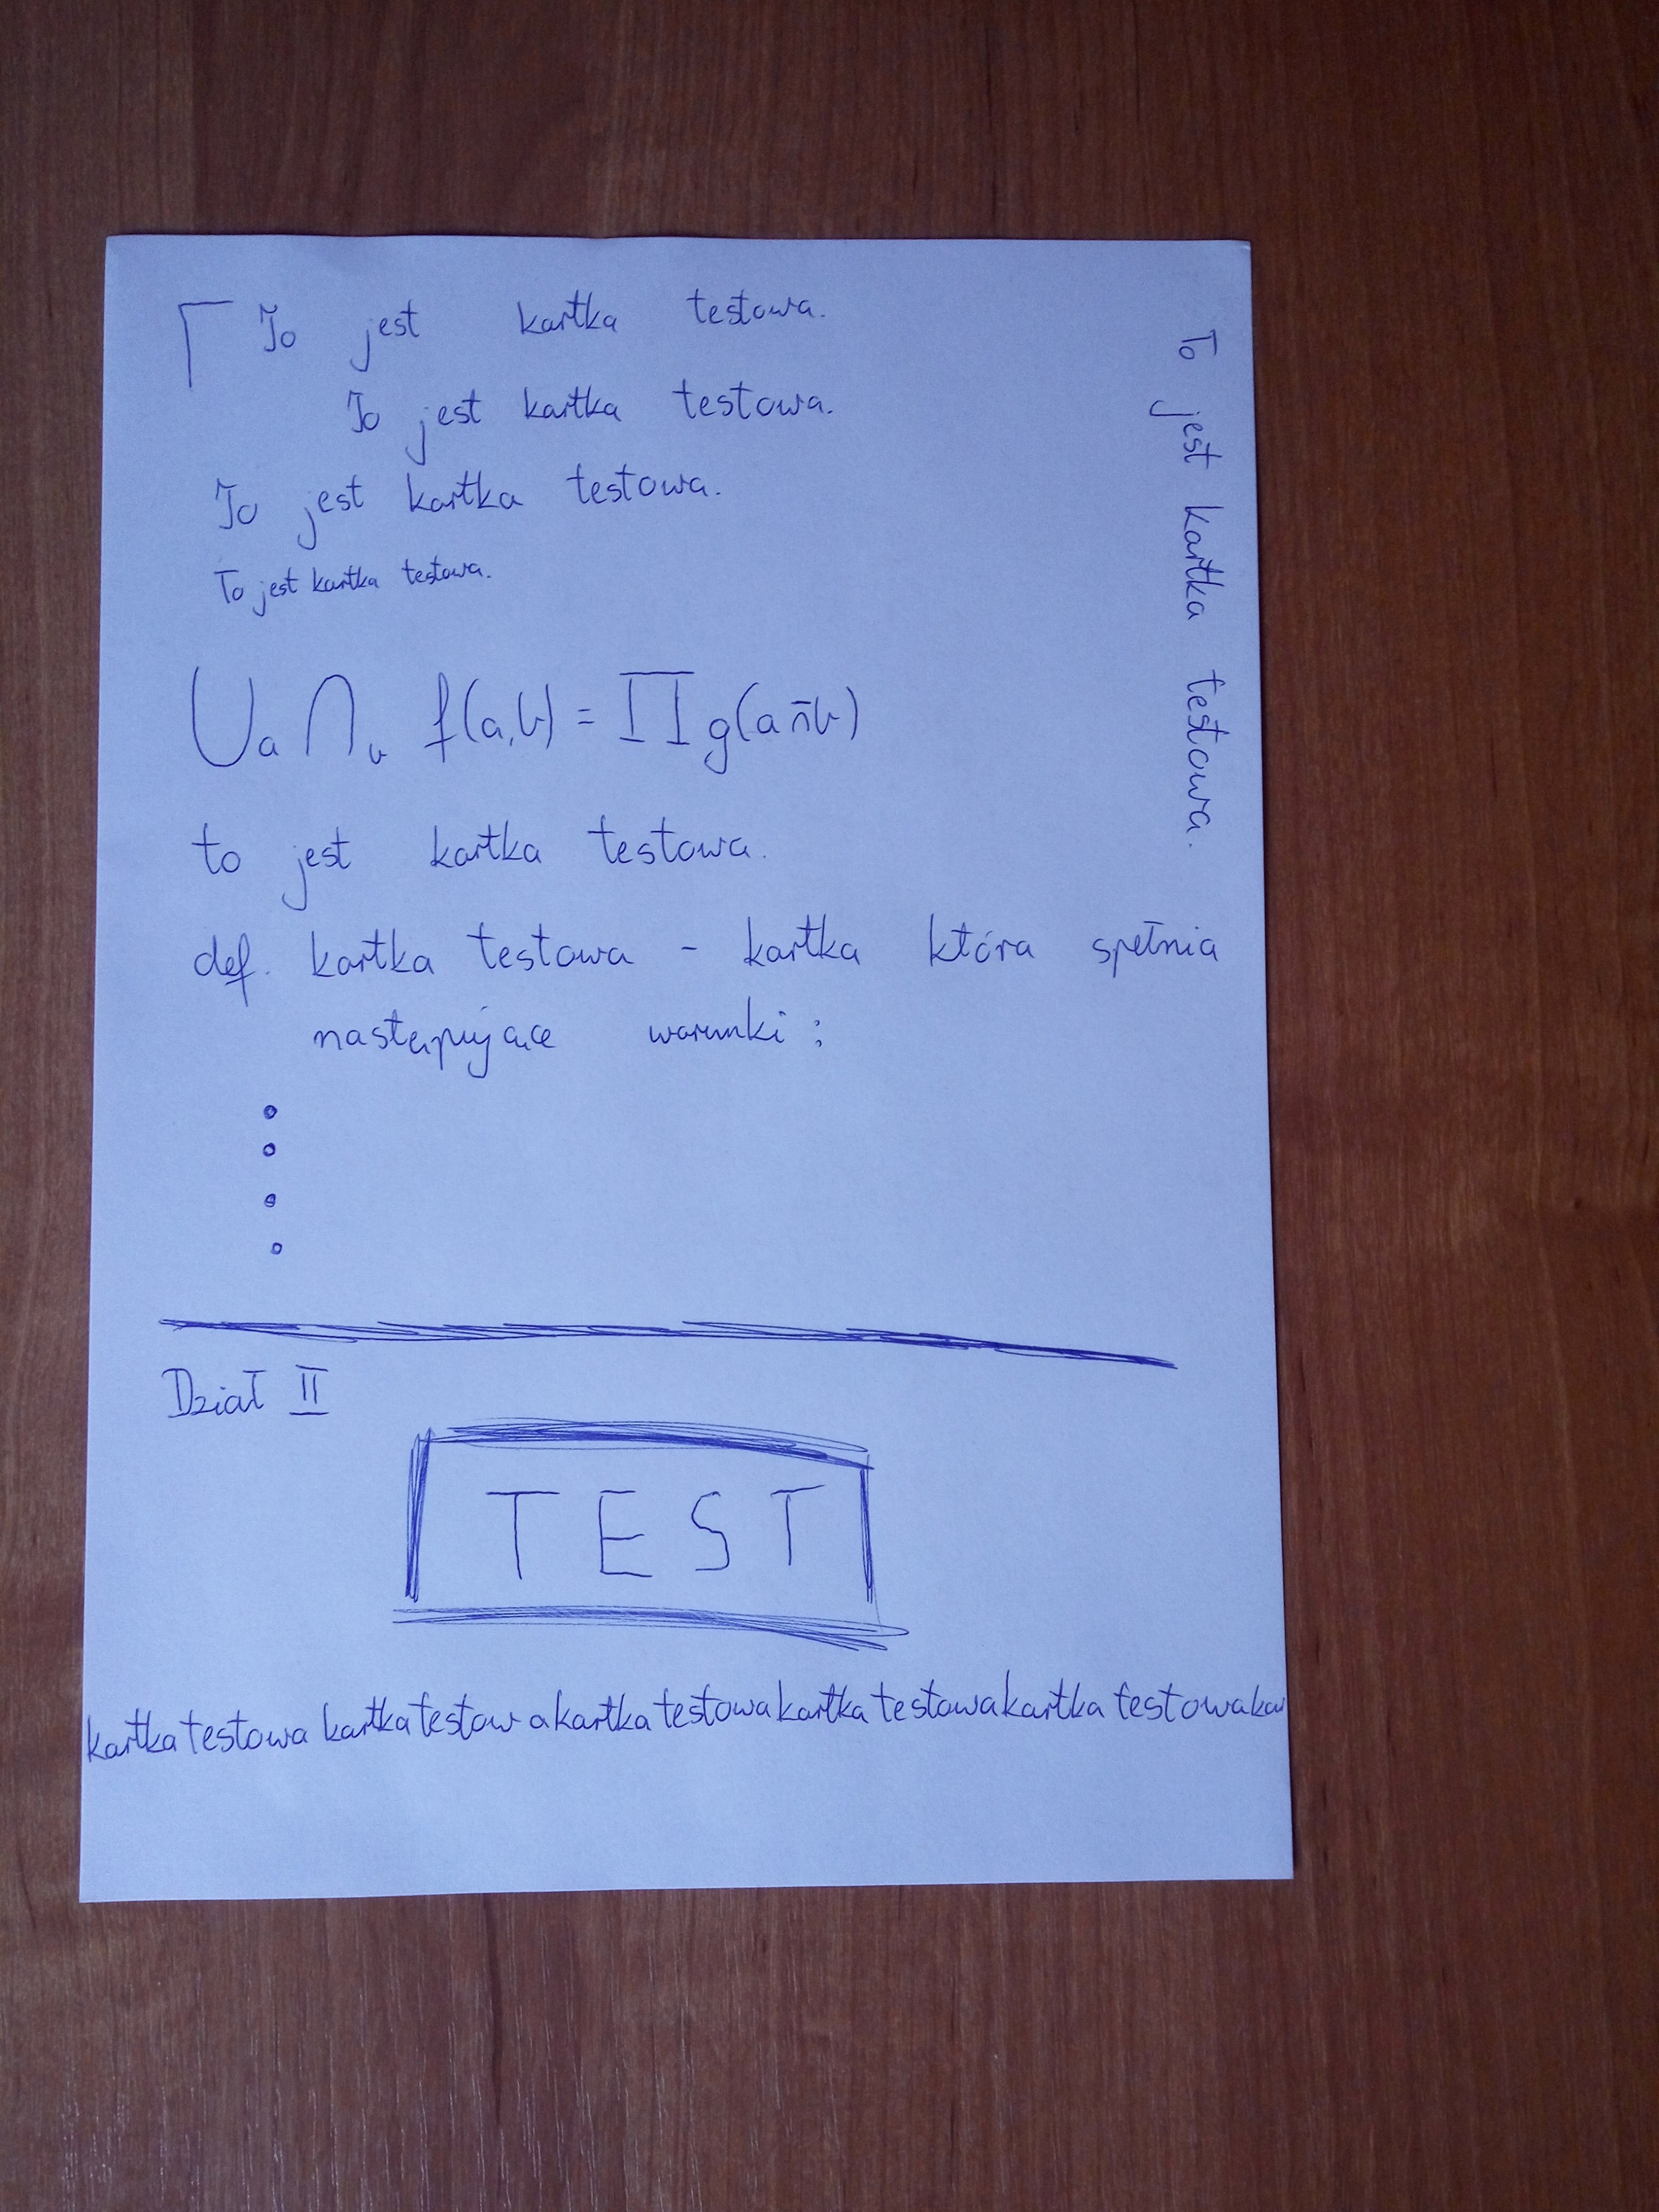 To jest kartka testowa.
To jest kartka testowa.
To jest kartka testowa.
To jest kartka testowa.
⋃a ⋂b f(a,b) = ∏ g(a n̄ b)
to jest kartka testowa.
def. kartka testowa - kartka która spełnia
następujące warunki:
•
•
•
•
Dział II
TEST
kartkatestowa kartkatestow akartkatestowakartkatestowakartkatestowakar
To jest kartka testowa.